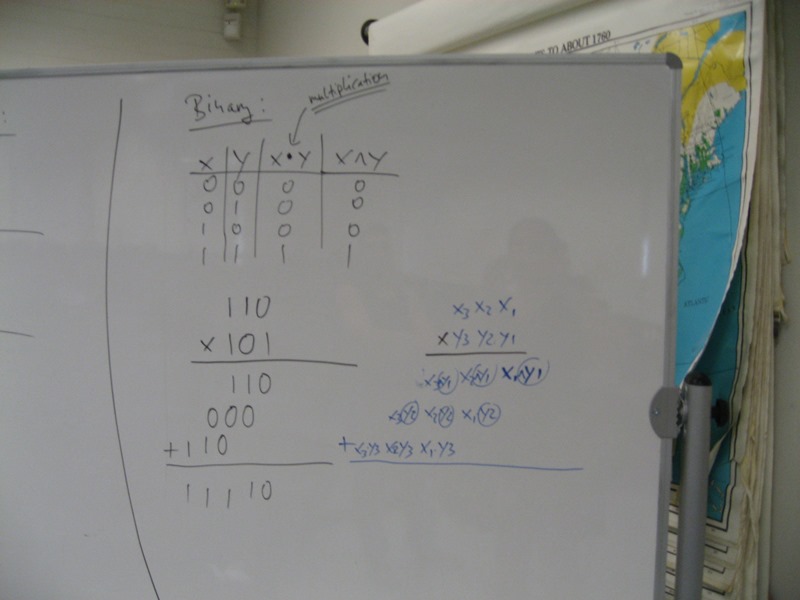 TO ABOUT 1760
Binary:
multiplication
X Y X•Y X∧Y
0 0 0 0
0 1 0 0
1 0 0 0
1 1 1 1
110
x 101
110
000
+110
11110
x3 x2 x1
x y3 y2 y1
x3∧y1 x2∧y1 x1∧y1
x3y2 x2y2 x1y2
+x3y3 x2y3 x1y3
ATLANTIC